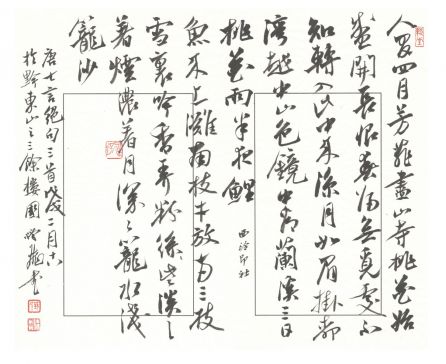 人間四月芳菲盡山寺桃花始
盛開長恨春歸無覓處不
知轉入此中來涼月如眉掛柳
灣越中山色鏡中看蘭溪三日
桃花雨半夜鯉
魚來上灘南枝才放兩三枝
雪裏吟香弄粉些淡〻
著煙濃著月深〻籠水淺
籠沙
唐七言絕句三首
於黔東山之三餘樓國
西泠印社